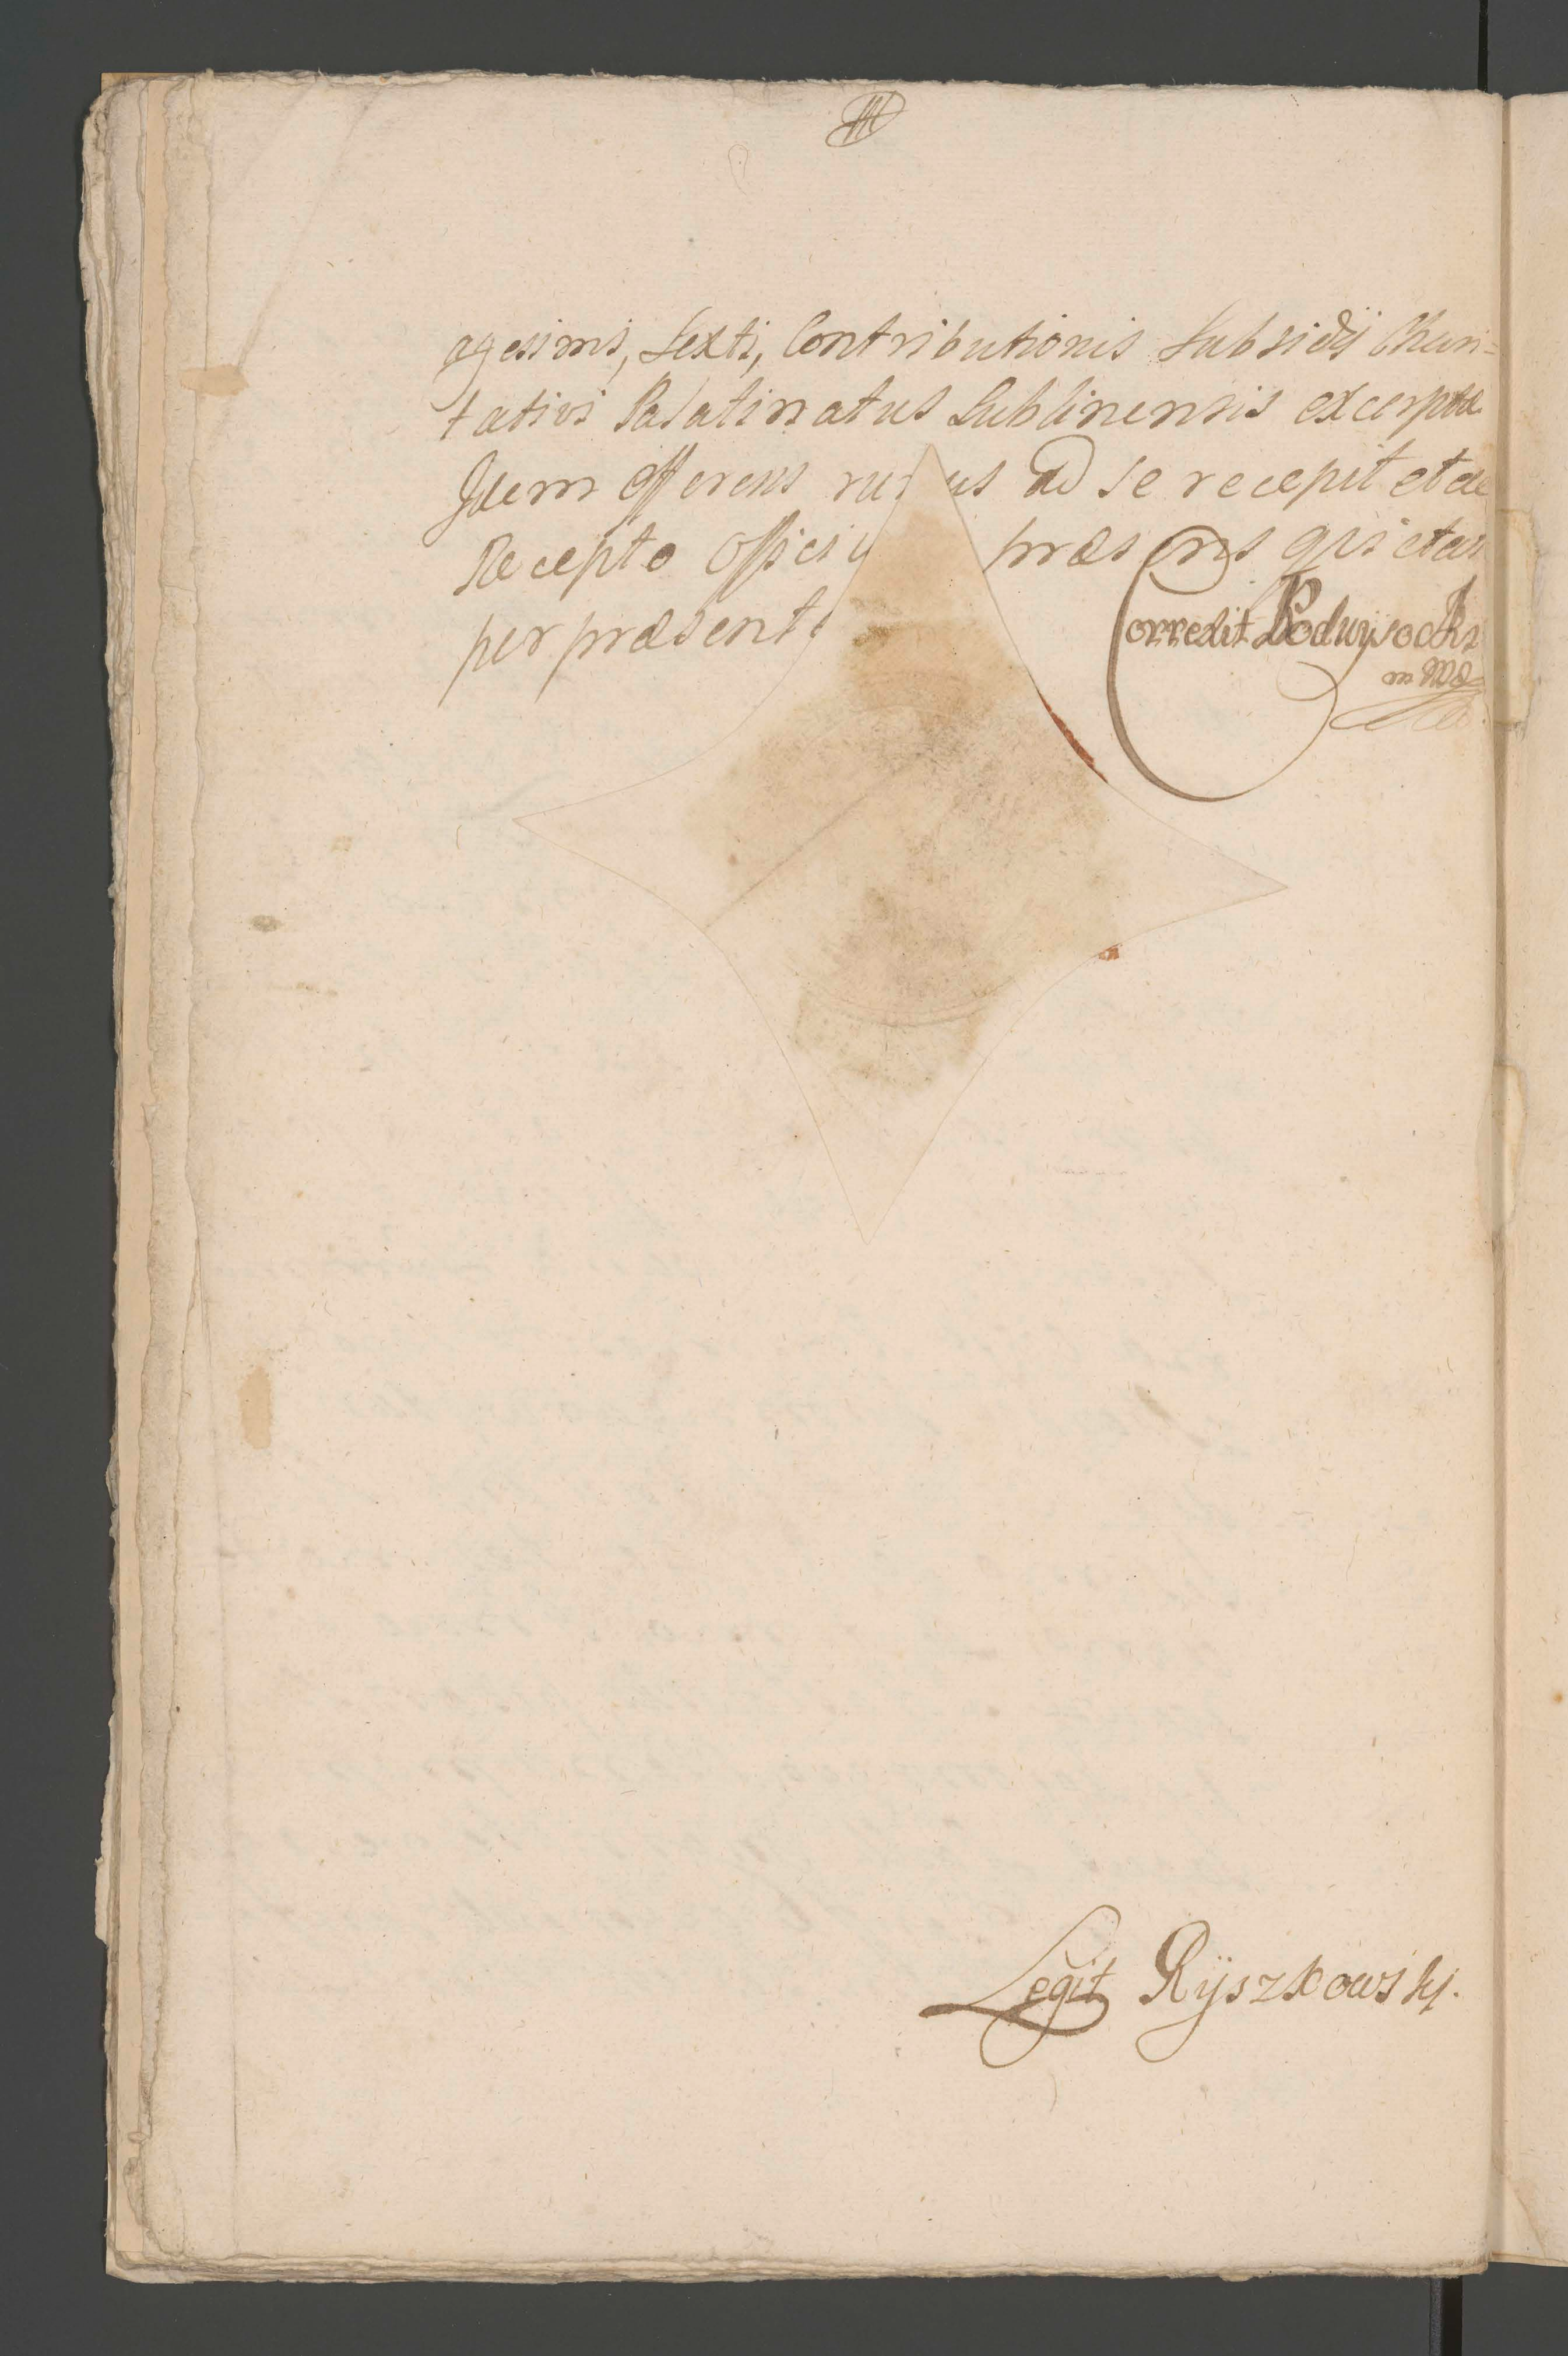 agesimi, Sexti, Contributionis Subsidÿ Chari=
tativi Palatinatus Lublinensis excerptæ
Idem offerens rur us ad se recepit et de
Recepto Offici præsens quietav
per præsent
Correxit Podwÿsocki
Legit Rÿszkowski.